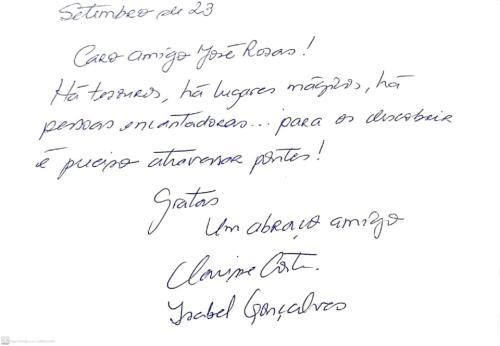 Setembro de 23
Caro amigo José Rosas!
Há tesouros, há lugares mágicos, há
pessoas encantadoras... para os descobrir
é preciso atravessar pontes!
Gratas
Um abraço amigo
Clarisse Costa.
Isabel Gonçalves